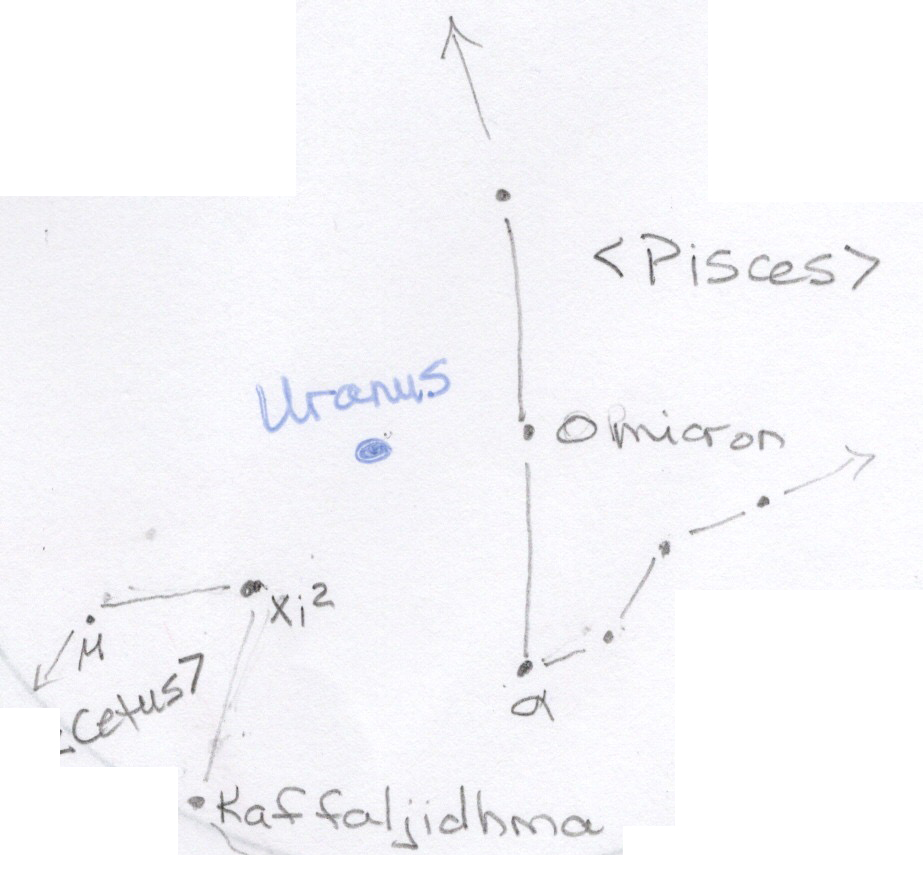 <Pisces>
Uranus
Omicron
Xi²
μ
<Cetus>
α
Kaffaljidhma